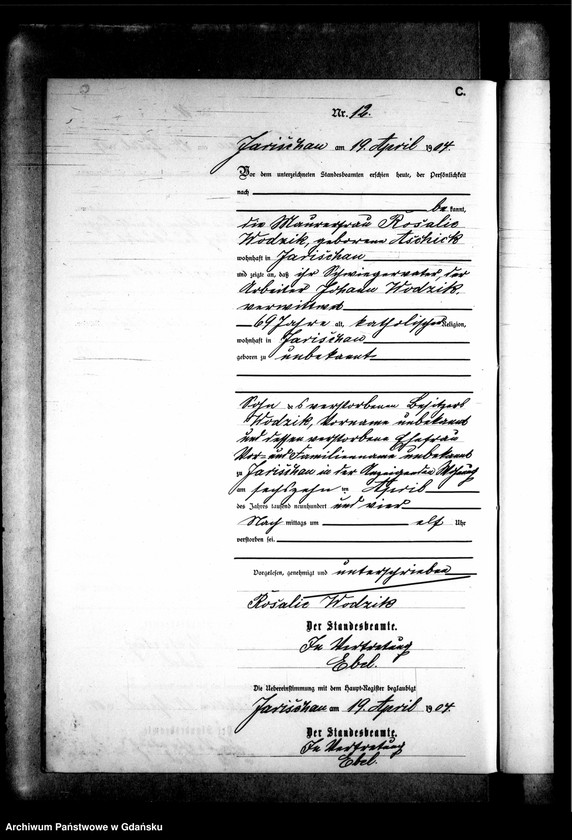 C.
Nr. 12.
Jarischau am 19. April 1904.
Vor dem unterzeichneten Standesbeamten erschien heute, der Persönlichkeit
nach
be kannt,
die Maurerfrau Rosalie
Wodzik, geborene Aschick
wohnhaft in Jarischau
und zeigte an, daß ihr Schwiegervater, der
Arbeiter Johann Wodzik,
verwittwet
69 Jahre alt, katholischer Religion,
wohnhaft in Jarischau
geboren zu unbekannt
Sohn des verstorbenen Besitzers
Wodzik, Vorname unbekannt
und dessen verstorbene Ehefrau
Vor- und Familienname unbekannt
zu Jarischau in der Anzeigenden Wohnung
am sechszehn ten April
des Jahres tausend neunhundert und vier
Nach mittags um elf Uhr
verstorben sei.
Vorgelesen, genehmigt und unterschrieben
Rosalie Wodzik
Der Standesbeamte.
In Vertretung
Ebel.
Die Uebereinstimmung mit dem Haupt-Register beglaubigt
Jarischau am 19. April 1904.
Der Standesbeamte.
In Vertretung
Ebel.
Archiwum Państwowe w Gdańsku